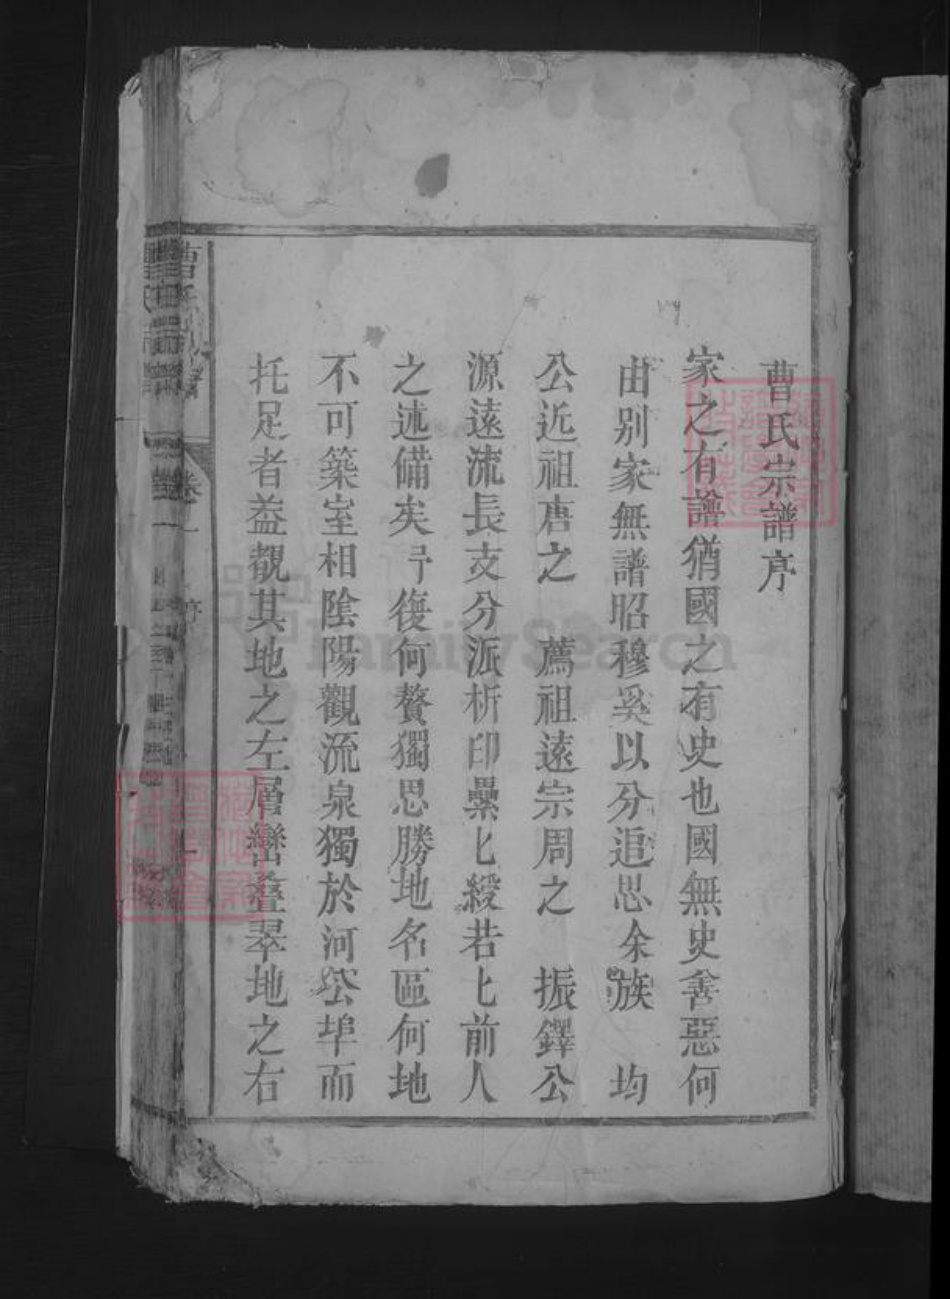 曹氏宗譜序
家之有譜猶國之有史也國無史善惡何
由别家無譜昭穆奚以分追思余族　均
公近祖唐之　薦祖遠宗周之　振鐸公
源遠流長支分派析印纍匕綬若匕前人
之述備矣予復何贅獨思勝地名區何地
不可築室相陰陽觀流泉獨於河公埠而
托足者葢覩其地之左層巒叠翠地之右
曹氏
卷一
序
FamilySearch